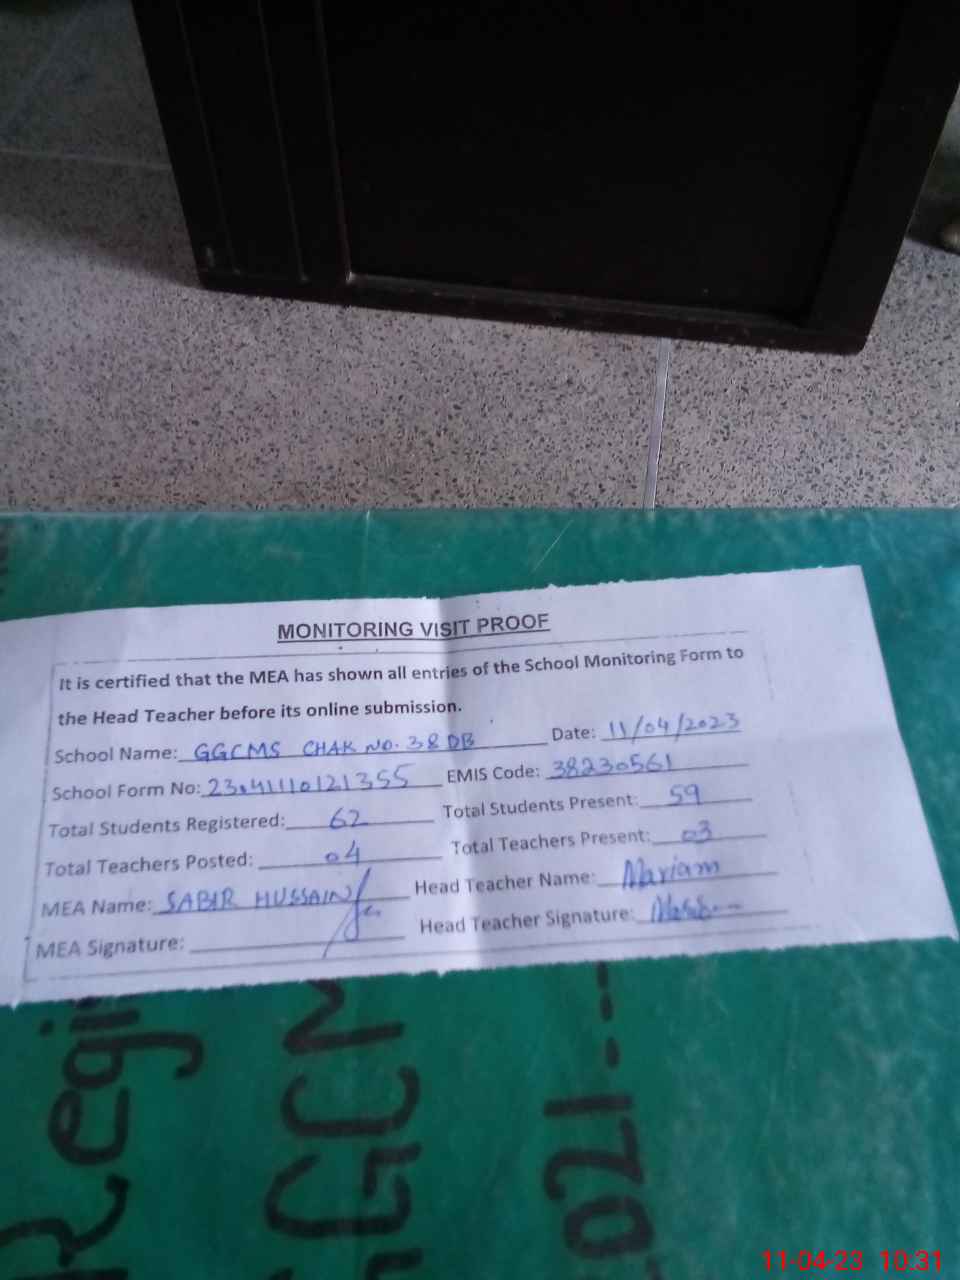 MONITORING VISIT PROOF
It is certified that the MEA has shown all entries of the School Monitoring Form to
the Head Teacher before its online submission.
School Name: GGCMS CHAK NO. 38 DB Date: 11/04/2023
School Form No: 23041110121355 EMIS Code: 38230561
Total Students Registered: 62 Total Students Present: 59
Total Teachers Posted: 04 Total Teachers Present: 03
MEA Name: SABIR HUSSAIN Head Teacher Name: Mariam
MEA Signature: Head Teacher Signature:
Regi
GGCM
2021--
11-04-23 10:31